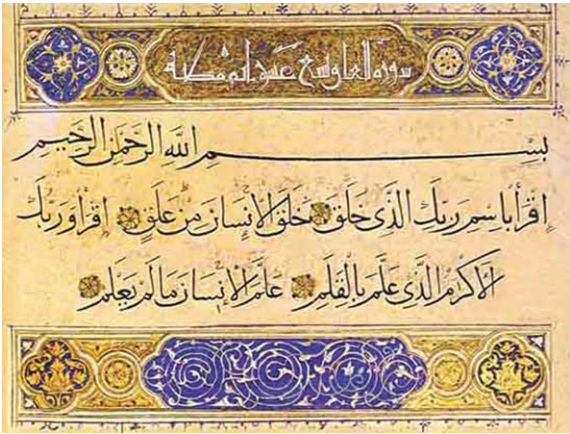 سورة العلق تسع عشر مكية
بِسْمِ اللهِ الرَّحْمَنِ الرَّحِيمِ
اِقْرَأْ بِاسْمِ رَبِّكَ الَّذِى خَلَقَ خَلَقَ الْاِنْسَانَ مِنْ عَلَقٍ اِقْرَأْ وَرَبُّكَ
الْأَكْرَمُ الَّذِى عَلَّمَ بِالْقَلَمِ عَلَّمَ الْاِنْسَانَ مَا لَمْ يَعْلَمْ